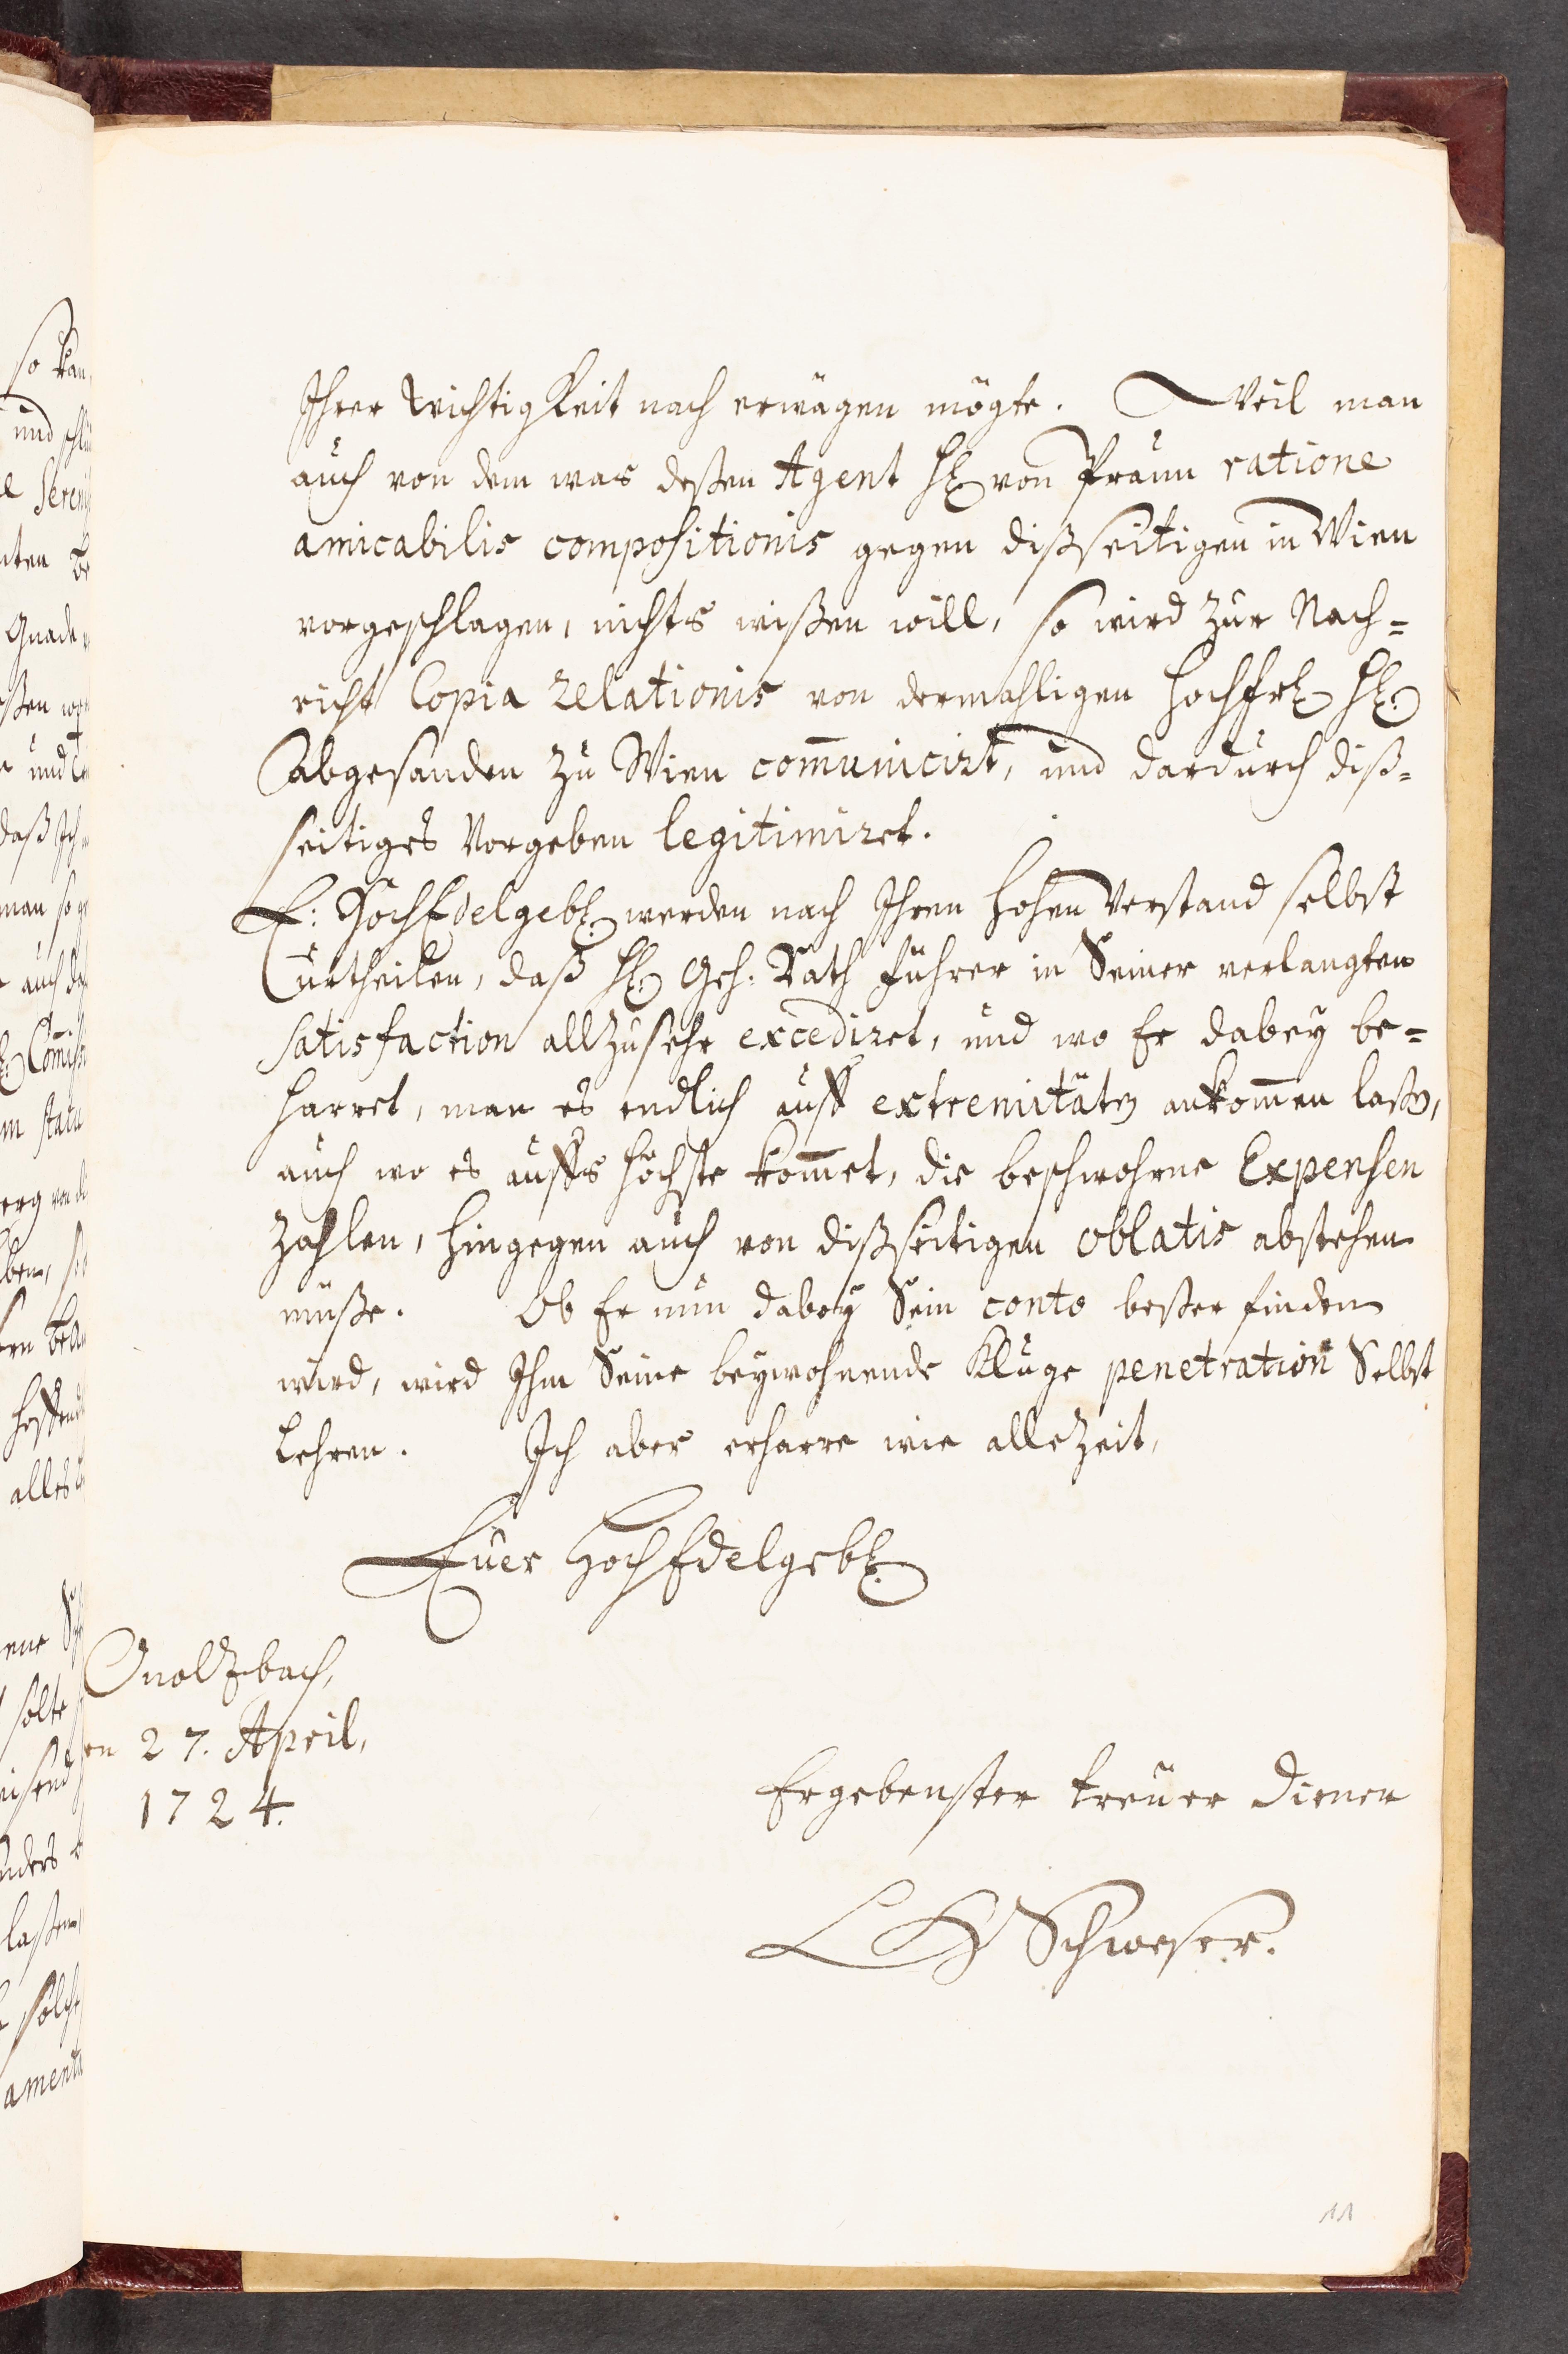 Ihrer Wichtigkeit nach erwägen mögte. Weil man
auch von dem was deßen Agent H. von Praun ratione
amicabilis compositionis gegen dißseitigen in Wien
vorgeschlagen, nichts wißen will, so wird zur Nach=
richt Copia relationis von dermahligen Hochfrl. H.
abgesanden zu Wien com̄unicirt, und dardurch diß=
seitiges Vorgeben legitimiret.
E: HochEdelgebl. werden nach Ihren hohen Verstand selbst
urtheilen, daß H. Geh: Rath Führer in Seiner verlangten
satisfaction allzusehr excediret, und wo Er dabey be=
harret, man es endlich auff extremitäten ankom̄en laßen,
auch wo es auffs höchste kom̄et, die beschwohrne Expensen
zahlen, hingegen auch von dißseitigen oblatis abstehen
müße. Ob Er nun dabey Sein conto beßer finden
wird, wird Ihm Seine beywohnende Kluge penetration Selbst
Lehren. Ich aber erharre wie allezeit,
Euer HochEdelgebl.
Onoltzbach,
en 27. April,
1724.
Ergebenster treuer Diener
Schweser.
11